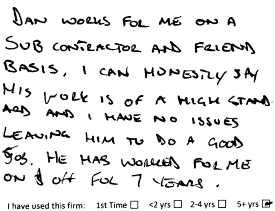 DAN WORKS FOR ME ON A
SUB CONTRACTOR AND FRIEND
BASIS, I CAN HONESTLY SAY
HIS WORK IS OF A HIGH STAND
ARD AND I HAVE NO ISSUES
LEAVING HIM TO DO A GOOD
JOB. HE HAS WORKED FOR ME
ON & OFF FOR 7 YEARS.
I have used this firm: 1st Time ☐ <2 yrs ☐ 2-4 yrs ☐ 5+ yrs ☒